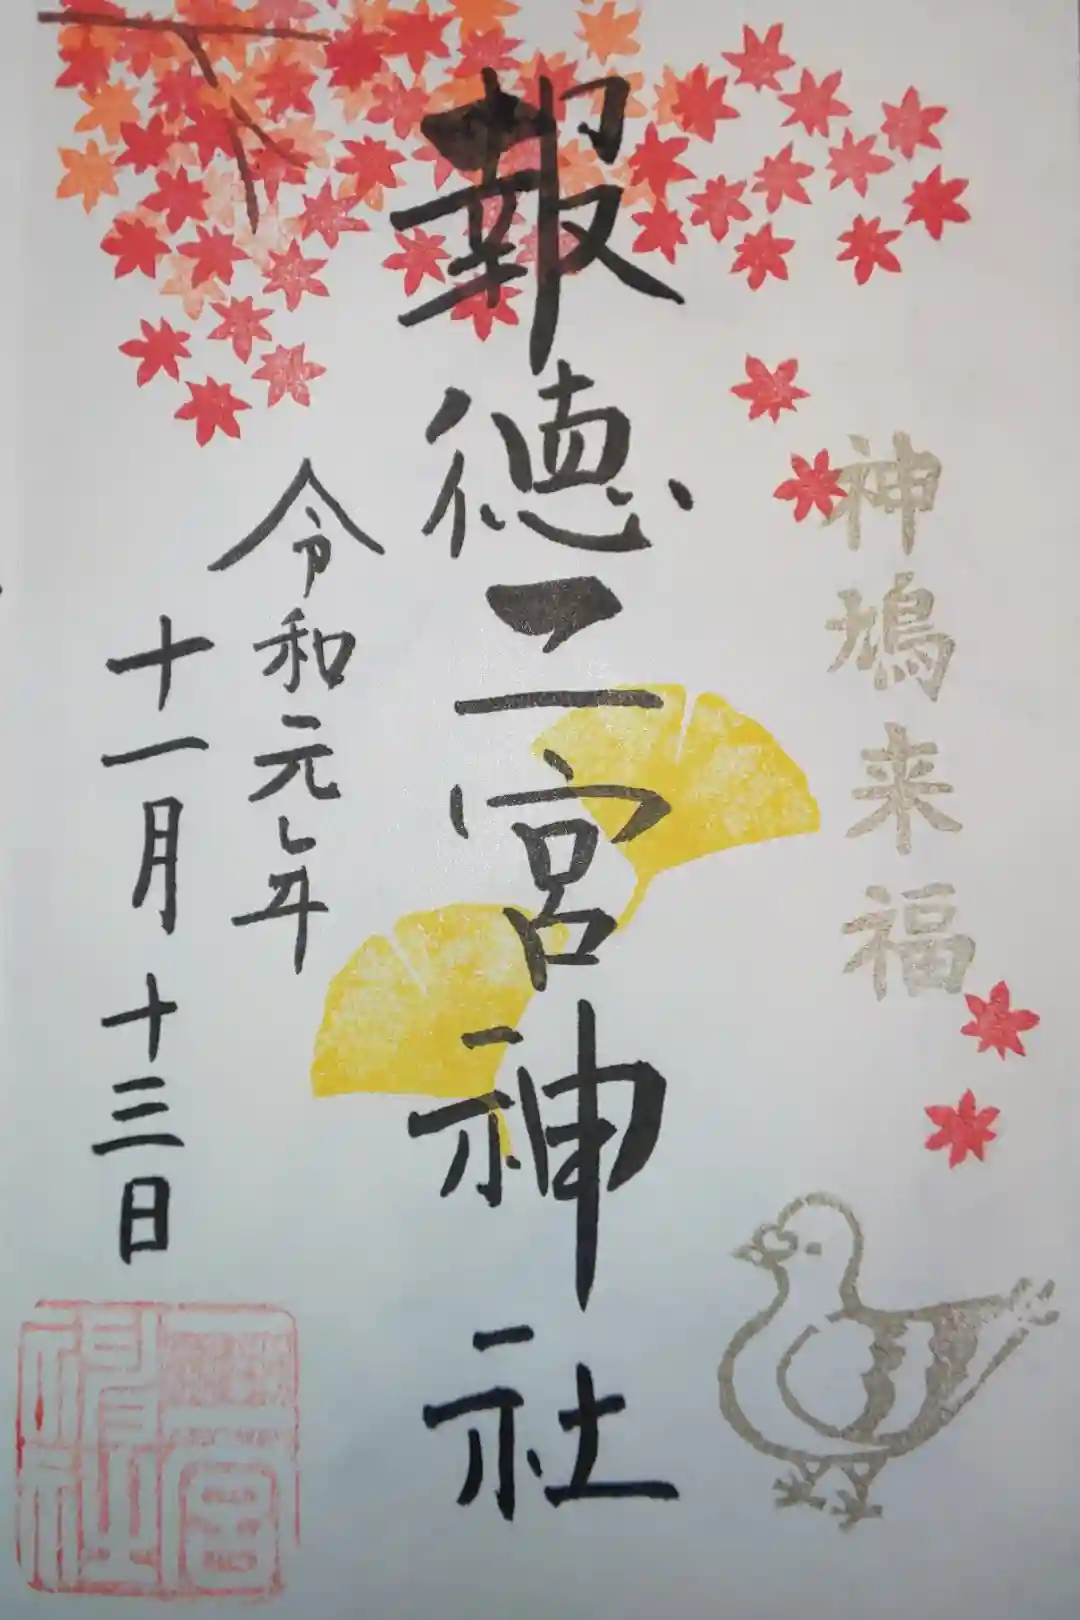 神鳩来福
報徳二宮神社
令和元年
十一月十三日
二宮
神社